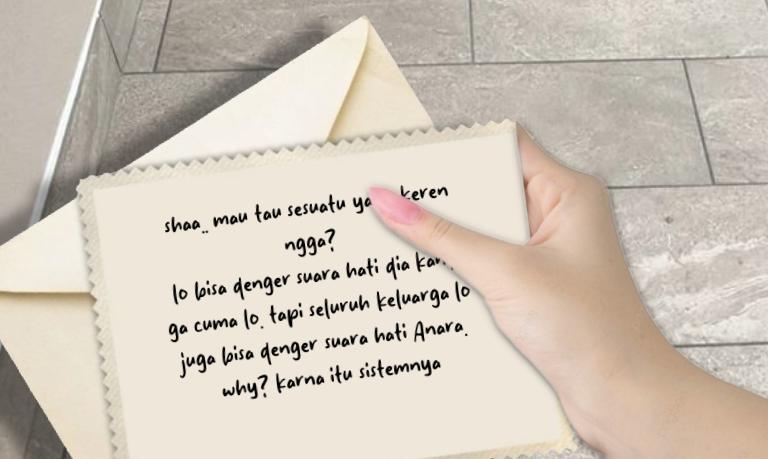 shaa.. mau tau sesuatu keren
ngga?
lo bisa denger suara hati dia
ga cuma lo. tapi seluruh keluarga lo
juga bisa denger suara hati Anara.
why? karna itu sistemnya